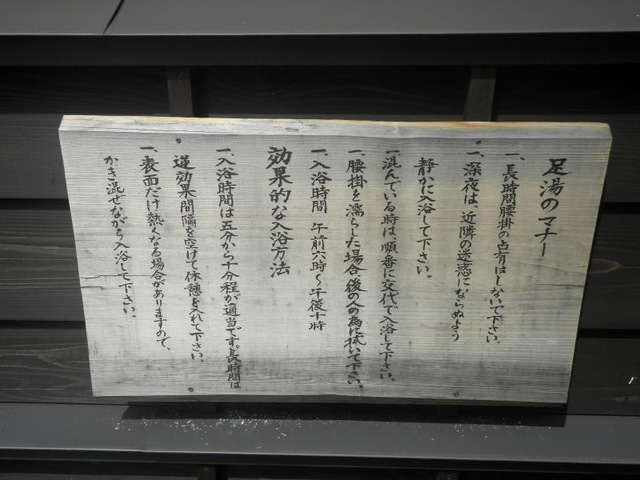 足湯のマナー
一、長時間腰掛の占有はしないで下さい。
一、深夜は、近隣の迷惑にならぬよう
静かに入浴して下さい。
一混んでいる時は順番に交代で入浴して下さい。
一、腰掛を濡らした場合後の人の為に拭いて下さい。
一、入浴時間 午前六時〜午後十時
効果的な入浴方法
一、入浴時間は五分から十分程が適当です。長時間は
逆効果間隔を空けて休憩を入れて下さい。
一、表面だけ熱くなる場合がありますので、
かき混ぜながら入浴して下さい。